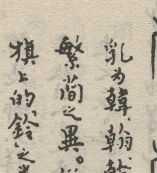 乳为韓、翰、
繁简之異。
旗上的鈴之